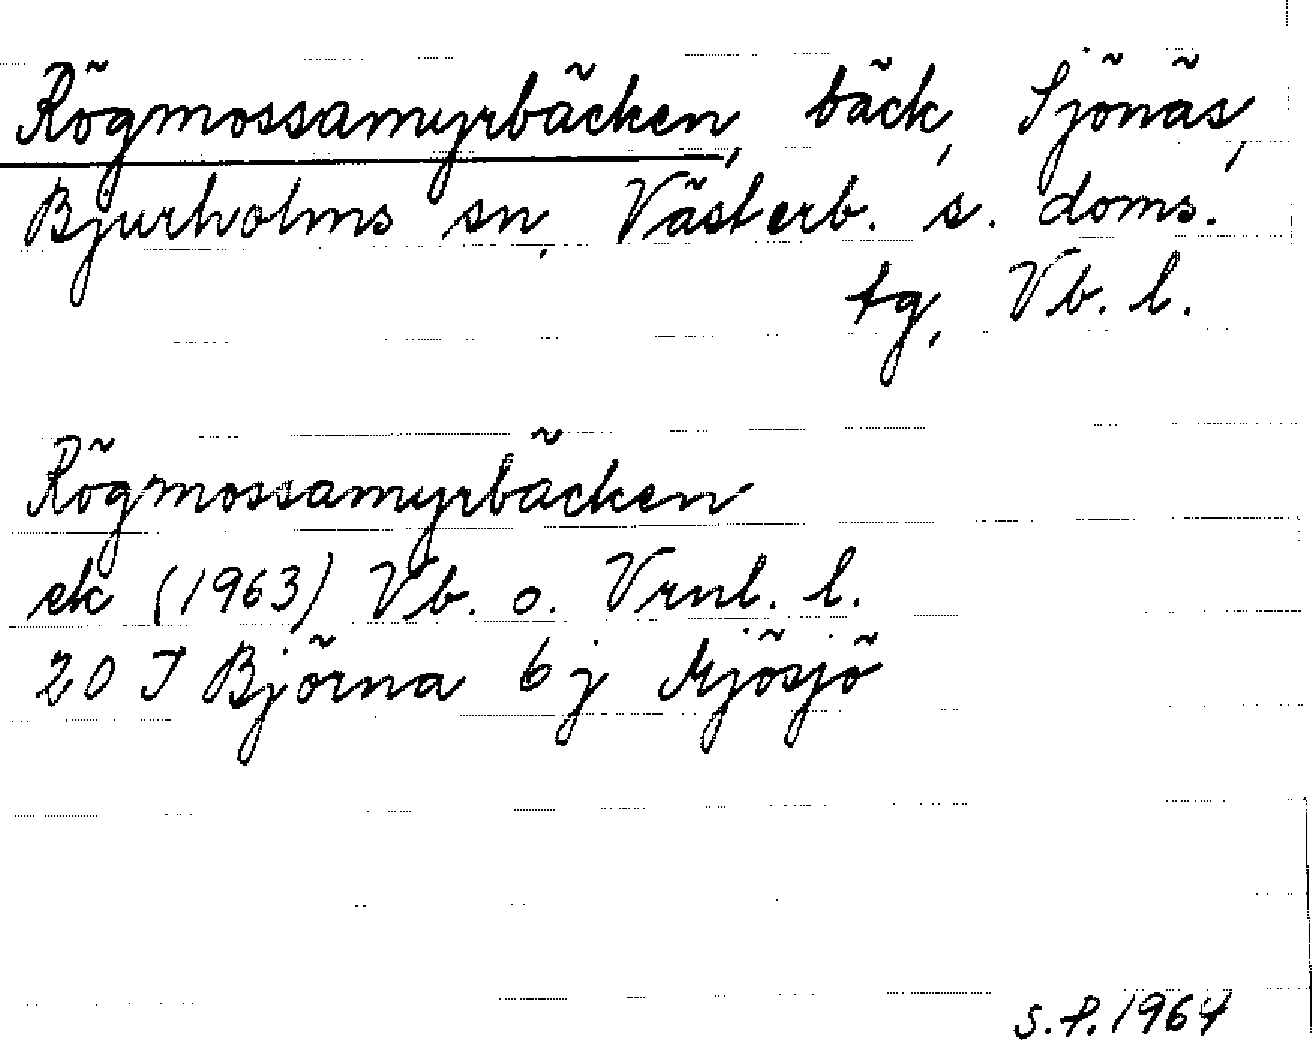 Rögmossamyrbäcken, bäck, Sjönäs,
Bjurholms sn, Västerb. s. doms.
tg, Vb. l.
Rögmossamyrbäcken
ek (1963) Vb. o. Vrnl. l.
20 I Björna 6 j Mjösjö
S.P. 1964